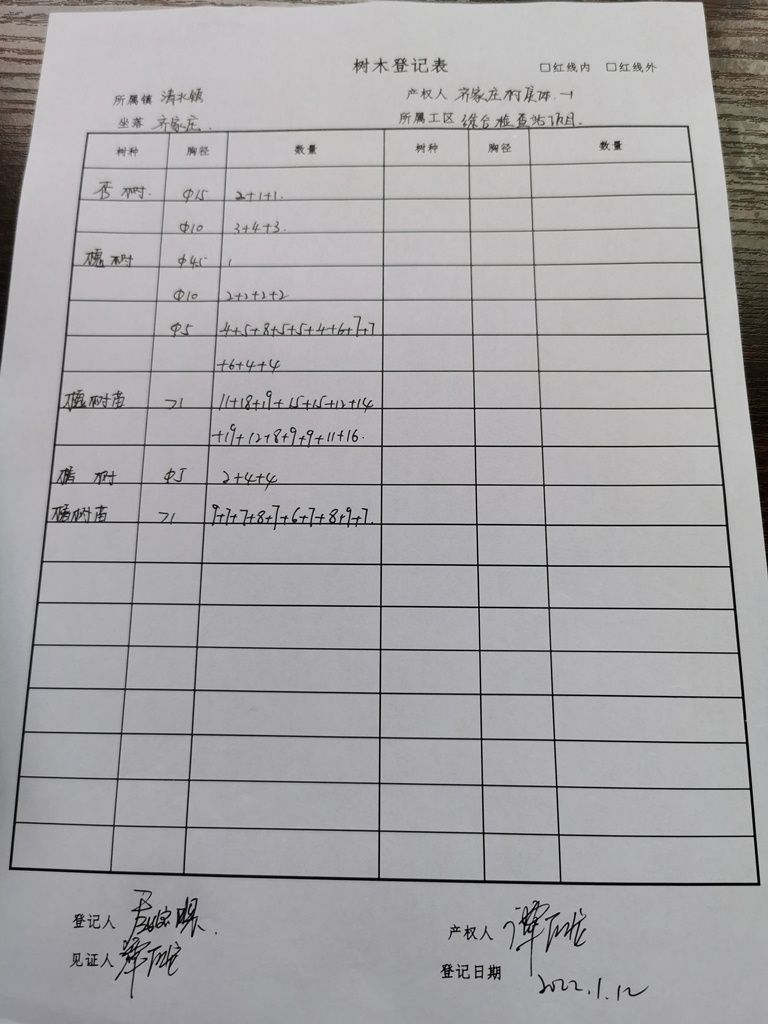 树木登记表 □红线内 □红线外
所属镇 清水镇 产权人 齐家庄村集体-1
坐落 齐家庄. 所属工区 综合检查站项目.
树种 胸径 数量 树种 胸径 数量
杏树. Φ15 2+1+1.
Φ10 3+4+3.
槐树 Φ45 1
Φ10 2+2+2+2
Φ5 4+5+8+5+5+4+6+7+7
+6+4+4
槐树苗 >1 11+18+19+15+15+12+14
+19+12+8+9+9+11+16.
树 Φ5 2+4+4
树苗 >1 9+7+7+8+7+6+7+8+9+7.
登记人 产权人
见证人 登记日期 2022.1.12